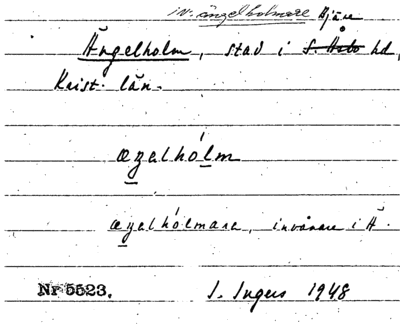 iv. ängelholmare Bjäre
Ängelholm, stad i S. Åsbo hd,
Krist. län.
æŋelhólm
æŋelhólmare, invånare i Ä.
Nr 5523. I. Ingers 1948